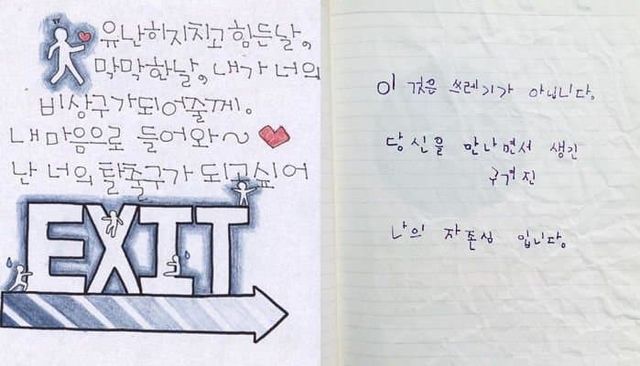 유난히지치고힘든날,
막막한날, 내가 너의
비상구가되어줄께.
내마음으로 들어와~
난 너의 탈출구가 되고싶어
EXIT
이 것은 쓰레기가 아닙니다.
당신을 만나면서 생긴
구겨진
나의 자존심 입니다.